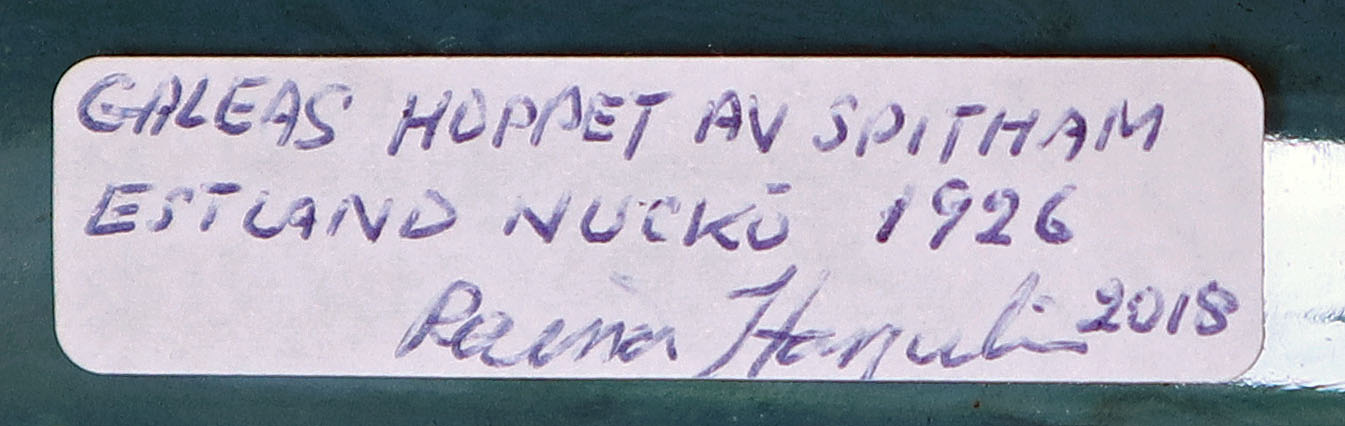 GALEAS HOPPET AV SPITHAM
ESTLAND NUCKÖ 1926
2018